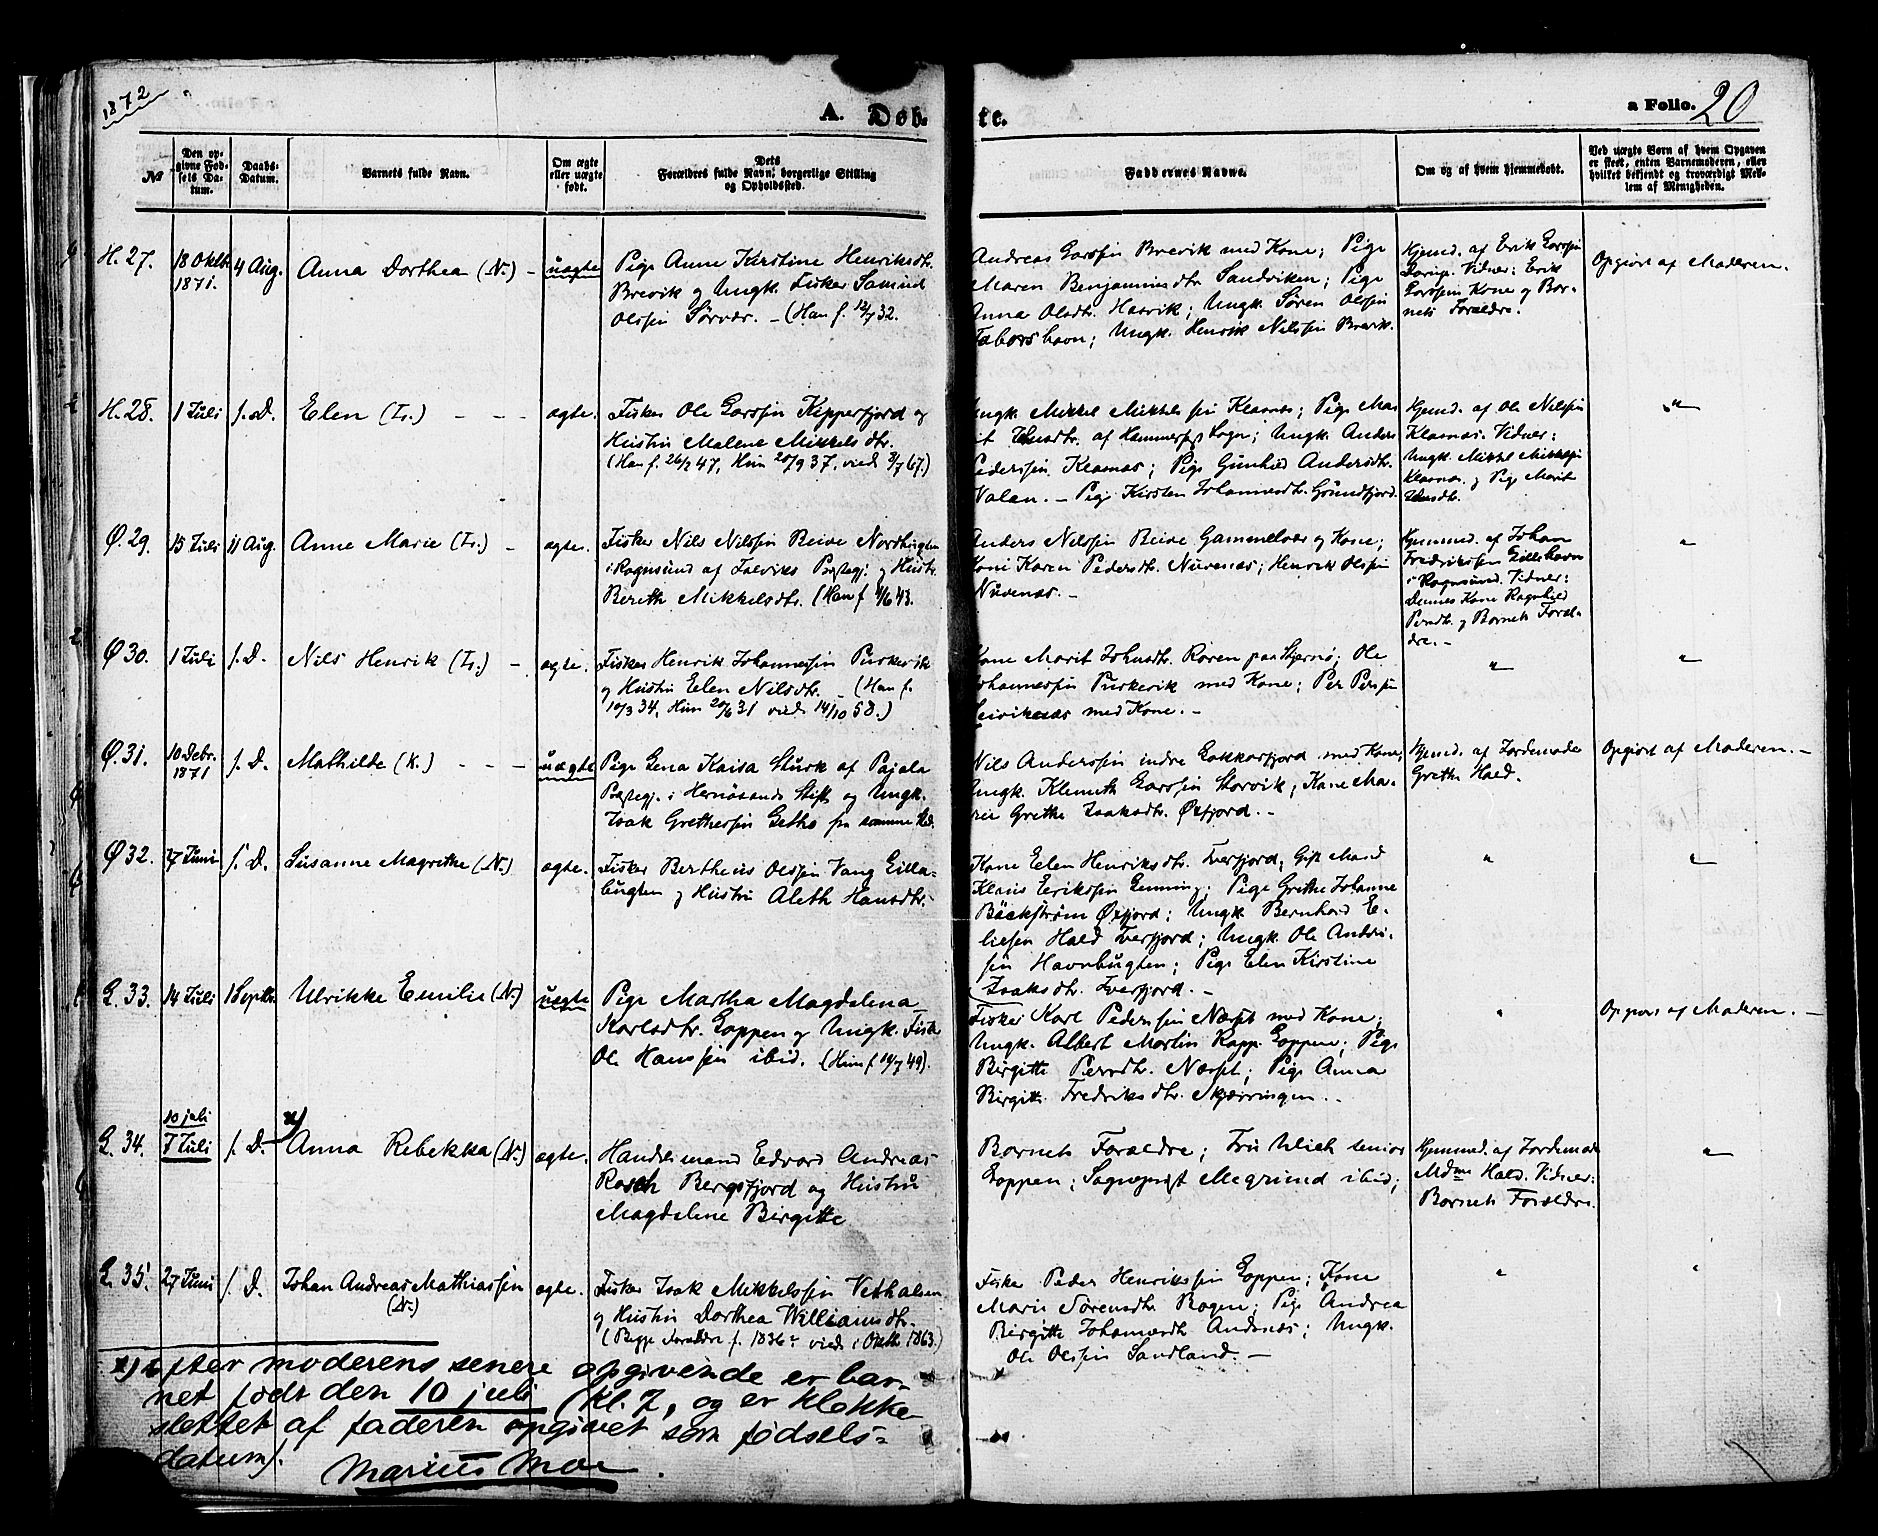 1872
A. Døb-
te.
a Folio. 20
№
Den op-
givne Fød-
sels Da-
tum.
Daabs-
Datum.
Barnets fulde Navn.
Om ægte
eller uægte
født.
Dets
Forældres fulde Navn, borgerlige Stilling
og Opholdssted.
Faddernes Navne.
Om og af hvem hjemmedøbt.
Ved uægte Børn af hvem Opgaven
er skeet, enten Barnemoderen, eller
hvilket bekjendt og troværdigt Med-
lem af Menigheden.
H. 27.
18 Oktbr.
1871.
4 Aug.
Anna Dorthea (N.) -
uægte
Pige Anne Kirstine Henriksdtr.
Brevik og Ungk. Fisker Samuel
Olssen Sørvær. - (Han f. 12/7 32.
Andreas Larssen Brevik med Kone; Pige
Maren Benjaminsdtr. Sandviken; Pige
Anna Olsdtr. Hasvik; Ungk. Søren Olssen
Tabors havn; Ungk. Henrik Nilssen Brevik.
Hjemd. af Erik Larssen
Vidner: Erik
Larssens Kone og Bar-
nets Forældre.
Opgivet af Moderen.
H. 28.
1 Juli
s. D.
Elen (L.) - - -
ægte.
Fisker Ole Larssen Kipperfjord og
Hustru Malene Mikkelsdtr.
(Han f. 26/2 47, Hun 20/9 37, viede 3/7 67.)
Ungk. Mikkel Mikkelssen Klavnæs; Pige Ma-
rit Johnsdtr. af Hammerfest Sogn; Ungk. Anders
Pederssen Klavnæs; Pige Gunhild Andersdtr.
Valan. - Pige Kirsten Johannesdtr. Grundfjord.
Hjemd. af Ole Nilssen
Klavnæs. Vidner:
Ungk. Mikkel Mikkelssen
Klavnæs og Pige Marit
Johnsdtr.
"
Ø. 29.
15 Juli
11 Aug.
Anne Marie (L.) -
ægte.
Fisker Nils Nilssen Beive Nordbugten
i Rognsund af Talviks Præstegj. og Hustr.
Bereth Mikkelsdtr. (Han f. 4/6 43.
Anders Nilssen Beive Gammelvær og Kone;
Kone Karen Pedersdtr. Nuvenæs; Henrik Olssen
Nuvenæs. -
Hjemmed. af Johan
Fredrikssen Lillehavn
i Rognsund. Vidner:
Dennes Kone Ragnhild
Persdtr. og Barnets Foræl-
dre. -
"
Ø 30.
1 Juli
s. D.
Nils Henrik (L.) -
ægte.
Fisker Henrik Johannessen Purkevik
og Hustru Elen Nilsdtr. - (Han f.
10/3 34, Hun 20/6 31 viede 14/10 58.)
Kone Marit Johnsdtr. Roren paa Stjernø; Ole
Johannessen Purkevik med Kone; Per Perssen
med Kone. -
"
"
Ø. 31.
10 Debr.
1871
s. D.
Mathilde (K.) - - -
uægte
Pige Lena Kaisa Sturk af Pajala
Præstegj. i Hernøsands Stift og Ungk.
Isak Grethessen fra samme Sted.
Nils Anderssen indre Lokkarfjord med Kone;
Ungk. Klemeth Larssen Storvik; Kone Ma-
rie Grethe Isaksdtr. Øxfjord. -
Hjemd. af Jordemoder
Grethe Hald.
Opgivet af Moderen. -
Ø 32.
27 Juni
s. D.
Susanne Magrethe (N.)
ægte.
Fisker Bertheus Olssen Vang Lille-
bugten og Hustru Aleth Hansdtr.
Kone Elen Henriksdtr. Tverfjord; Gift Mand
Klaus Erikssen; Pige Grethe Johanne
Bäckström Øxfjord; Ungk. Bernhard E-
liesen Hald Tverfjord; Ungk. Ole Andre-
sen Havnbugten; Pige Elen Kirstine
Isaksdtr. Tverfjord. -
"
"
L. 33.
14 Juli
1 Septbr.
Ulrikke Emilie (N.)
uægte
Pige Martha Magdalena
Karlsdtr. Loppen og Ungk. Fisker
Ole Hanssen ibid. (Hun f. 19/7 49).
Fisker Karl Pederssen Næsset med Kone;
Ungk. Albert Martin Rapp Loppen; Pige
Birgitte Persdtr. Næsset; Pige Anna
Birgitte Fredriksdtr. Skjærringen. -
"
Opgivet af Moderen. -
L. 34.
10 juli
7 Juli
s. D.
x)
Anna Rebekka (N.)
ægte.
Handelsmand Edvard Andreas
Rasch Bergsfjord og Hustru
Magdalene Birgitte
Barnets Forældre; Fru Ulich senior
Loppen; Sognepræst Megrund ibid;
Hjemmed. af Jordemoder
Mdme Hald. Vidner:
Barnets Forældre.
"
L. 35.
27 Juni
s. D.
Johan Andreas Mathiassen
(N.)
ægte.
Fisker Isak Mikkelssen Vethalsen
og Hustru Dorthea Williamsdtr.
(Begge Forældre f. 1836. viede i Oktbr. 1863.)
Fisker Peder Henrikssen Loppen; Kone
Marie Sørensdtr. Bogen; Pige Andrea
Birgitte Johannesdtr. Andsnæs; Ungk.
Ole Olssen Sandland. -
"
"
x) Efter moderens senere opgivende er bar-
net født den 10 juli (kl. 7, og er klokke
slettet af faderen opgivet som fødsels-
datum).
Marius Moe.